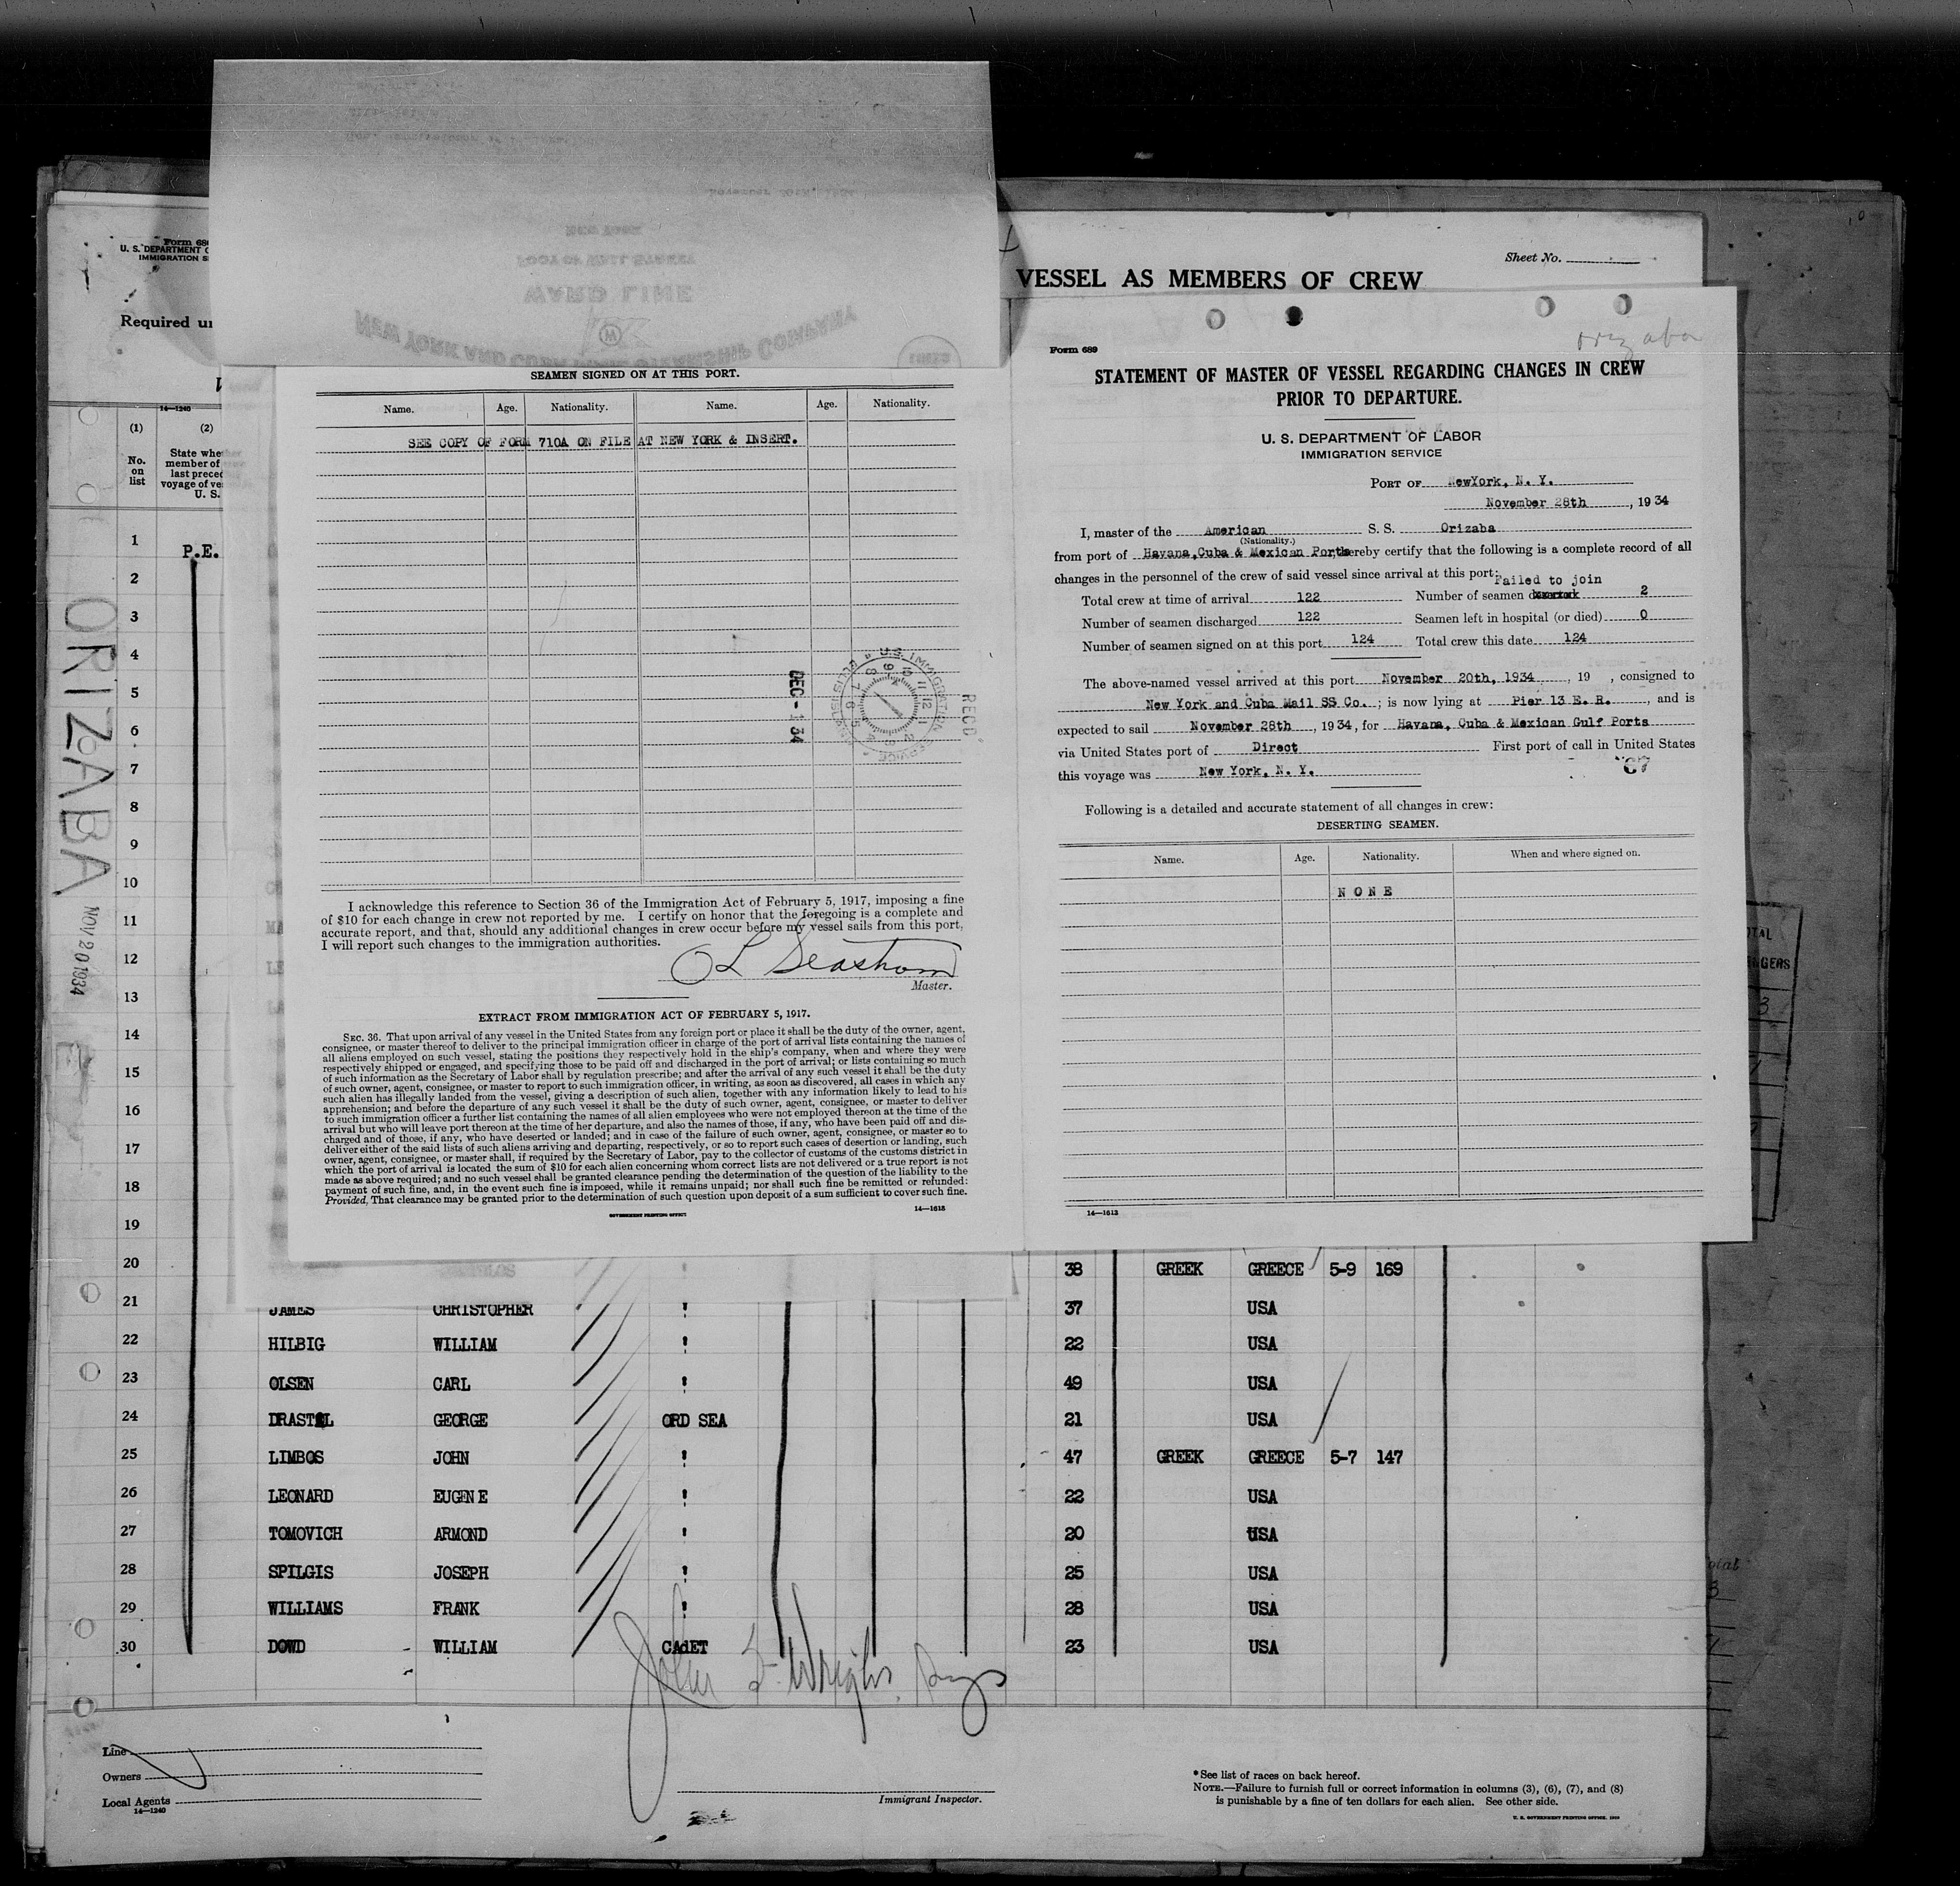 Form 689
U. S. DEPARTMENT
IMMIGRATION
Required
14—1240
(1)
(2)
No.
on
list
State
member of
last
voyage of
U. S.
P.E.
ORIZABA
NOV 20 1934
WARD LINE
NEW YORK AND CUBA MAIL STEAMSHIP COMPANY
FOOT OF WALL STREET
NEW YORK
SEAMEN SIGNED ON AT THIS PORT.
Name. Age. Nationality. Name. Age. Nationality.
SEE COPY OF FORM 710A ON FILE AT NEW YORK & INSERT.
REC'D
U.S. IMMIGRATION SERVICE
DEC - 1 34
I acknowledge this reference to Section 36 of the Immigration Act of February 5, 1917, imposing a fine
of $10 for each change in crew not reported by me. I certify on honor that the foregoing is a complete and
accurate report, and that, should any additional changes in crew occur before my vessel sails from this port,
I will report such changes to the immigration authorities.
Master.
EXTRACT FROM IMMIGRATION ACT OF FEBRUARY 5, 1917.
SEC. 36. That upon arrival of any vessel in the United States from any foreign port or place it shall be the duty of the owner, agent,
consignee, or master thereof to deliver to the principal immigration officer in charge of the port of arrival lists containing the names of
all aliens employed on such vessel, stating the positions they respectively hold in the ship's company, when and where they were
respectively shipped or engaged, and specifying those to be paid off and discharged in the port of arrival; or lists containing so much
of such information as the Secretary of Labor shall by regulation prescribe; and after the arrival of any such vessel it shall be the duty
of such owner, agent, consignee, or master to report to such immigration officer, in writing, as soon as discovered, all cases in which any
such alien has illegally landed from the vessel, giving a description of such alien, together with any information likely to lead to his
apprehension; and before the departure of any such vessel it shall be the duty of such owner, agent, consignee, or master to deliver
to such immigration officer a further list containing the names of all alien employees who were not employed thereon at the time of the
arrival but who will leave port thereon at the time of her departure, and also the names of those, if any, who have been paid off and dis-
charged and of those, if any, who have deserted or landed; and in case of the failure of such owner, agent, consignee, or master so to
deliver either of the said lists of such aliens arriving and departing, respectively, or so to report such cases of desertion or landing, such
owner, agent, consignee, or master shall, if required by the Secretary of Labor, pay to the collector of customs of the customs district in
which the port of arrival is located the sum of $10 for each alien concerning whom correct lists are not delivered or a true report is not
made as above required; and no such vessel shall be granted clearance pending the determination of the question of the liability to the
payment of such fine, and, in the event such fine is imposed, while it remains unpaid; nor shall such fine be remitted or refunded:
Provided, That clearance may be granted prior to the determination of such question upon deposit of a sum sufficient to cover such fine.
GOVERNMENT PRINTING OFFICE
14—1613
Sheet No.
VESSEL AS MEMBERS OF CREW
Orizaba
Form 689
STATEMENT OF MASTER OF VESSEL REGARDING CHANGES IN CREW
PRIOR TO DEPARTURE.
U. S. DEPARTMENT OF LABOR
IMMIGRATION SERVICE
PORT OF NewYork, N. Y.
November 28th, 1934
I, master of the American S. S. Orizaba
(Nationality.)
from port of Havana,Cuba & Mexican Ports hereby certify that the following is a complete record of all
changes in the personnel of the crew of said vessel since arrival at this port:
Failed to join
Total crew at time of arrival 122 Number of seamen 2
Number of seamen discharged 122 Seamen left in hospital (or died) 0
Number of seamen signed on at this port 124 Total crew this date 124
The above-named vessel arrived at this port November 20th, 1934, 19 , consigned to
New York and Cuba Mail SS Co. ; is now lying at Pier 13 E. R. , and is
expected to sail November 28th, 1934, for Havana, Cuba & Mexican Gulf Ports
via United States port of Direct First port of call in United States
this voyage was New York, N. Y.
67
Following is a detailed and accurate statement of all changes in crew:
DESERTING SEAMEN.
Name. Age. Nationality. When and where signed on.
NONE
14—1613
1
2
3
4
5
6
7
8
9
10
11
12
13
14
15
16
17
18
19
20 38 GREEK GREECE 5-9 169
21 JAMES CHRISTOPHER " 37 USA
22 HILBIG WILLIAM " 22 USA
23 OLSEN CARL " 49 USA
24 DRASTEL GEORGE ORD SEA 21 USA
25 LIMBOS JOHN " 47 GREEK GREECE 5-7 147
26 LEONARD EUGENE " 22 USA
27 TOMOVICH ARMOND " 20 USA
28 SPILGIS JOSEPH " 25 USA
29 WILLIAMS FRANK " 28 USA
30 DOWD WILLIAM CAdET 23 USA
Line
Owners
Local Agents
14—1240
Immigrant Inspector.
*See list of races on back hereof.
NOTE.—Failure to furnish full or correct information in columns (3), (6), (7), and (8)
is punishable by a fine of ten dollars for each alien. See other side.
U. S. GOVERNMENT PRINTING OFFICE